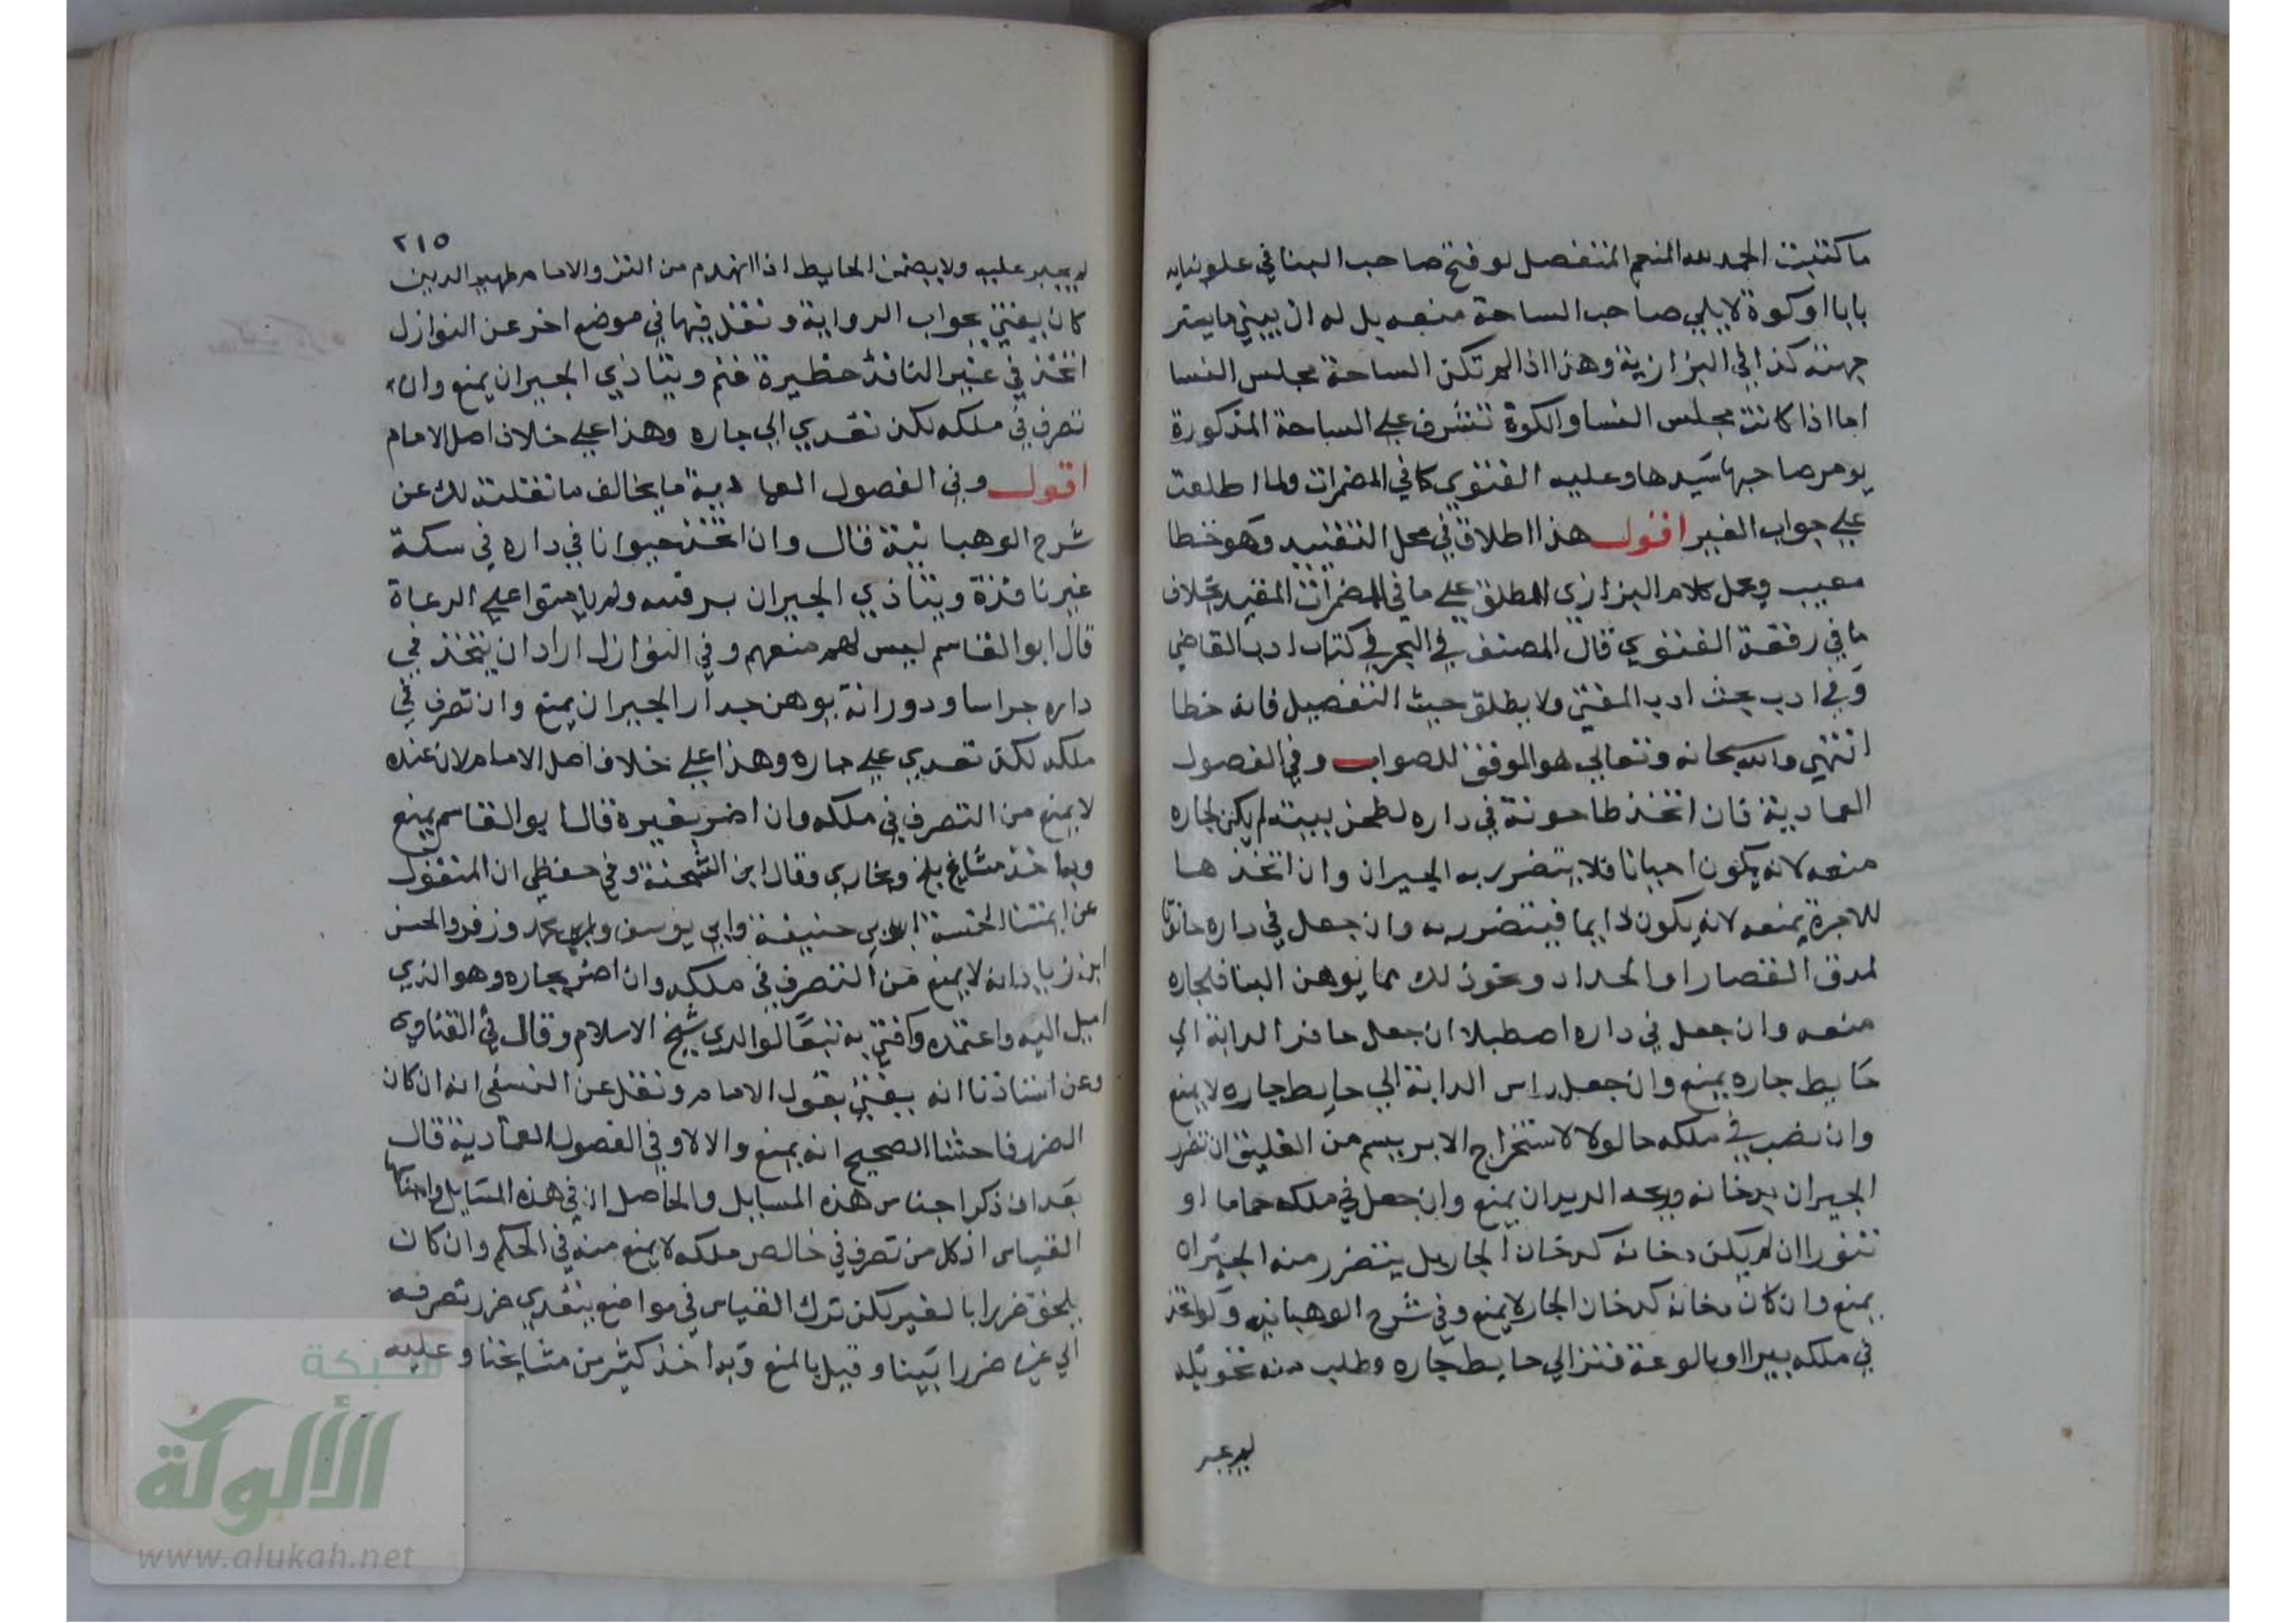 ما كتبت الحمد لله المنعم المتفضل لو فتح صاحب البنا في علو بنايه
بابا او كوة لا يلي صاحب الساحة منعه بل له ان يبني ما يستر
جهته كذا في البزازية وهذا اذا لم تكن الساحة مجلس النسا
اما اذا كانت مجلس النسا والكوة تشرف علي الساحة المذكورة
يومر صاحبها بسدها وعليه الفتوي كما في المضمرات ولما اطلعت
علي جواب الغير اقول هذا اطلاق في محل التقييد وهو خطا
معيب وحمل كلام البزازي المطلق علي ما في المضمرات المقيد بخلاف
ما في رقعة الفتوي قال المصنف في البحر في كتاب ادب القاضي
وفي ادب بحث ادب المفتي ولا يطلق حيث التفصيل فانه خطا
انتهي والله سبحانه وتعالي هو الموفق للصواب وفي الفصول
العمادية فان اتخذ طاحونة في داره لطحن بيته لم يكن لجاره
منعه لانه يكون احيانا فلا يتضرر به الجيران وان اتخذها
للاجرة يمنعه لانه يكون دايما فيتضرر به وان جعل في داره حانوتا
لمدق القصار او الحداد ونحو ذلك مما يوهن البنا فلجاره
منعه وان جعل في داره اصطبلا ان جعل حافر الدابة الي
حايط جاره يمنع وان جعل راس الدابة الي حايط جاره لا يمنع
وان نصب في ملكه حالولا لاستخراج الابريسم من الفليق ان تضرر
الجيران بدخانه وريحه الديدان يمنع وان جعل في ملكه حماما او
تنورا ان لم يكن دخانه كدخان الجار بل يتضرر منه الجيران
يمنع وان كان دخانه كدخان الجار لا يمنع وفي شرح الوهبانيه ولو اتخذ
في ملكه بيرا او بالوعة فنز الي حايط جاره وطلب منه تحويله
لم يجبر
٢١٥
لم يجبر عليه ولا يضمن الحايط اذا انهدم من النز والامام ظهير الدين
كان يفتي بجواب الرواية ونقل فيها في موضع اخر عن النوازل
اتخذ في غير النافذ حظيرة غنم ويتاذي الجيران يمنع وان
تصرف في ملكه لكن تعدي الي جاره وهذا علي خلاف اصل الامام
اقول وفي الفصول العمادية ما يخالف ما نقلته لك عن
شرح الوهبانية قال وان اتخذ حيوانا في داره في سكة
غير نافذة ويتاذي الجيران بسرقينه ولم يامنوا علي الرعاة
قال ابو القاسم ليس لهم منعهم وفي النوازل اراد ان يتخذ في
داره جراسا ودورانه يوهن جدار الجيران يمنع وان تصرف في
ملكه لكن تعدي علي جاره وهذا علي خلاف اصل الامام لان عنده
لا يمنع من التصرف في ملكه وان اضر بغيره قال ابو القاسم يمنع
وبه اخذ مشايخ بلخ وبخاري وقال ابن الشحنة وفي حفظي ان المنقول
عن ايمتنا الخمسة ابي حنيفة وابي يوسف ومحمد وزفر والحسن
ابن زياد انه لا يمنع من التصرف في ملكه وان اضر بجاره وهو الذي
اميل اليه واعتمده وافتي به تبعا لوالدي شيخ الاسلام وقال في الفتاوي
وعن استاذنا انه يفتي بقول الامام ونقل عن النسفي انه ان كان
الضرر فاحشا الصحيح انه يمنع والا لا وفي الفصول العمادية قال
بعد ان ذكر اجناس هذه المسايل والحاصل ان في هذه المسايل وامثالها
القياس ان كل من تصرف في خالص ملكه لا يمنع منه في الحكم وان كان
يلحق ضررا بالغير لكن ترك القياس في مواضع يتعدي ضرر تصرفه
الي غيره ضررا بينا وقيل بالمنع وبه اخذ كثير من مشايخنا وعليه
شبكة
الألوكة
www.alukah.net